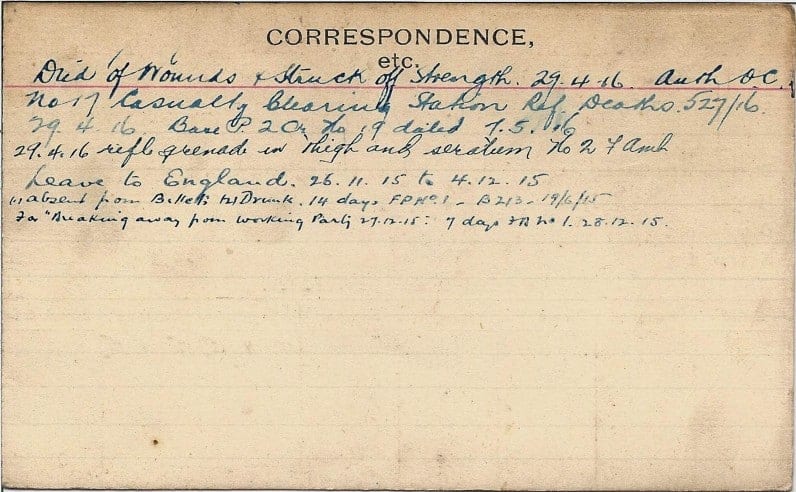 CORRESPONDENCE,
etc.
Died of Wounds & Struck off Strength. 29.4.16. Auth O.C.
No 17 Casualty Clearing Station Ref. Deaths. 527/16.
29.4.16 Base P. 2 No 9 dated 7.5.16
29.4.16 rifle grenade in thigh and scrotum No 2 F Amb
Leave to England. 26.11.15 to 4.12.15
(1) absent from Billets (2) Drunk. 14 days FP No. 1 - B213 - 19/6/15
For "Breaking away from working Party 27.12.15: 7 days No 1. 28.12.15.